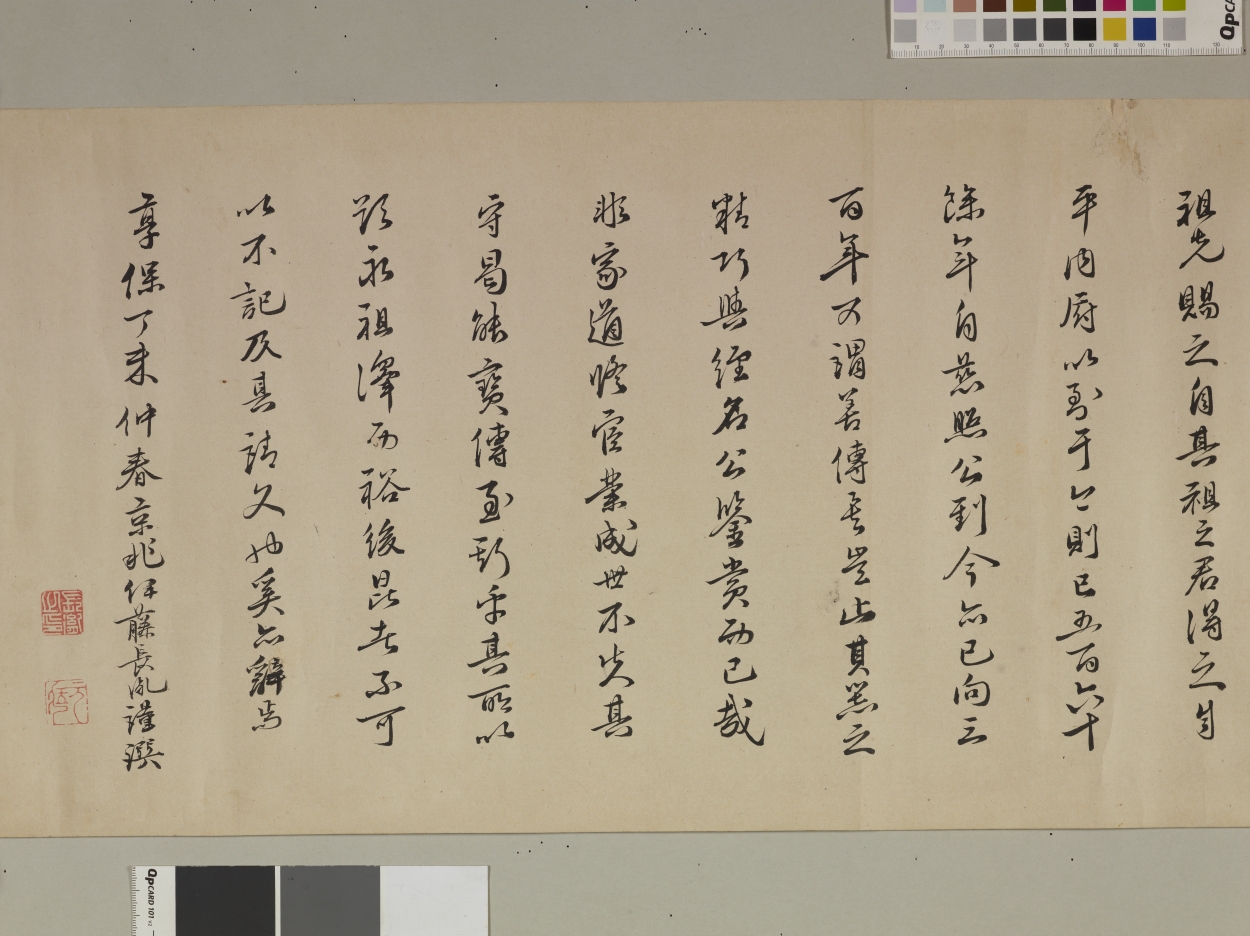 祖先賜之自其祖之君得之自
平内府以到于今則已五百六十
餘年自慈照公到今亦已向三
百年可謂善傳矣豈止其器之
精巧與經名公鑒賞而已哉
非家道修官業成世不失其
守曷能寶傳至斯乎其所以
詒永祖澤而裕後昆者不可
以不記及其請文也奚亦辭焉
享保丁未仲春京兆伊藤長胤謹撰
QPCARD 101